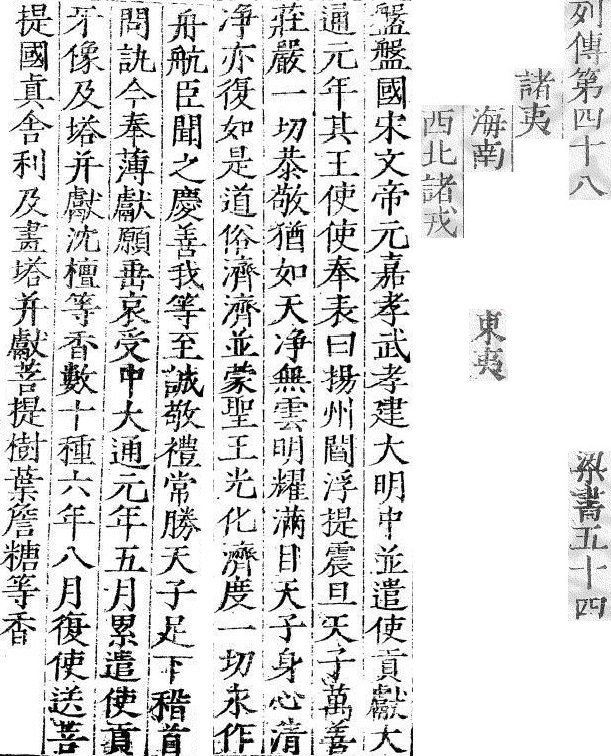 列傳第四十八 梁書五十四
諸夷
海南 東夷
西北諸戎
盤盤國宋文帝元嘉孝武孝建大明中並遣使貢獻大
通元年其王使使奉表曰揚州閻浮提震旦天子萬善
莊嚴一切恭敬猶如天净無雲明耀滿目天子身心清
净亦復如是道俗濟濟並蒙聖王光化濟度一切永作
舟航臣聞之慶善我等至誠敬禮常勝天子足下稽首
問訊今奉薄獻願垂哀受中大通元年五月累遣使貢
牙像及塔并獻沈檀等香數十種六年八月復使送菩
提國眞舍利及畫塔并獻菩提樹葉詹糖等香